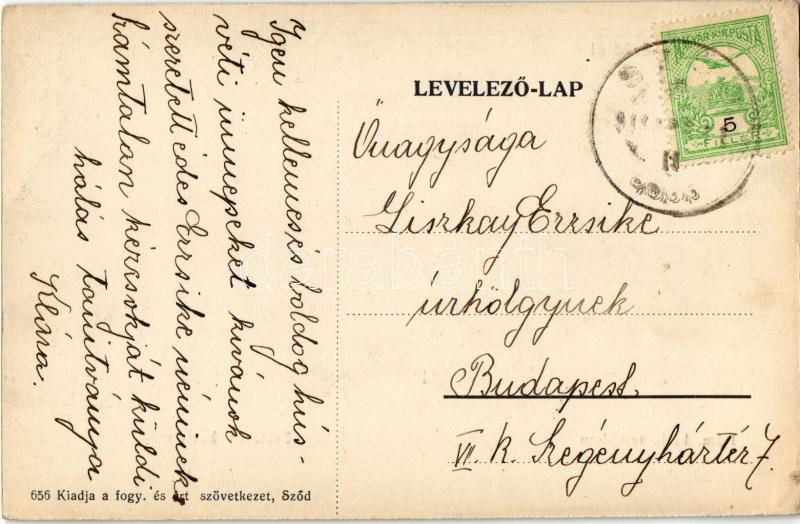 Igen kellemes és boldog hús-
véti ünnepeket kívánok
szeretett édes Errsike néninek,
számtalan kézcsókját küldi
hálás tanítványa
Klára.
LEVELEZŐ-LAP
MAGYAR KIR. POSTA
5
FILLÉR
Őnagysága
Liszkay Errsike
úrhölgynek
Budapest.
VII. k. Szegényház tér 7.
656 Kiadja a fogy. és ért. szövetkezet, Sződ
darabanth